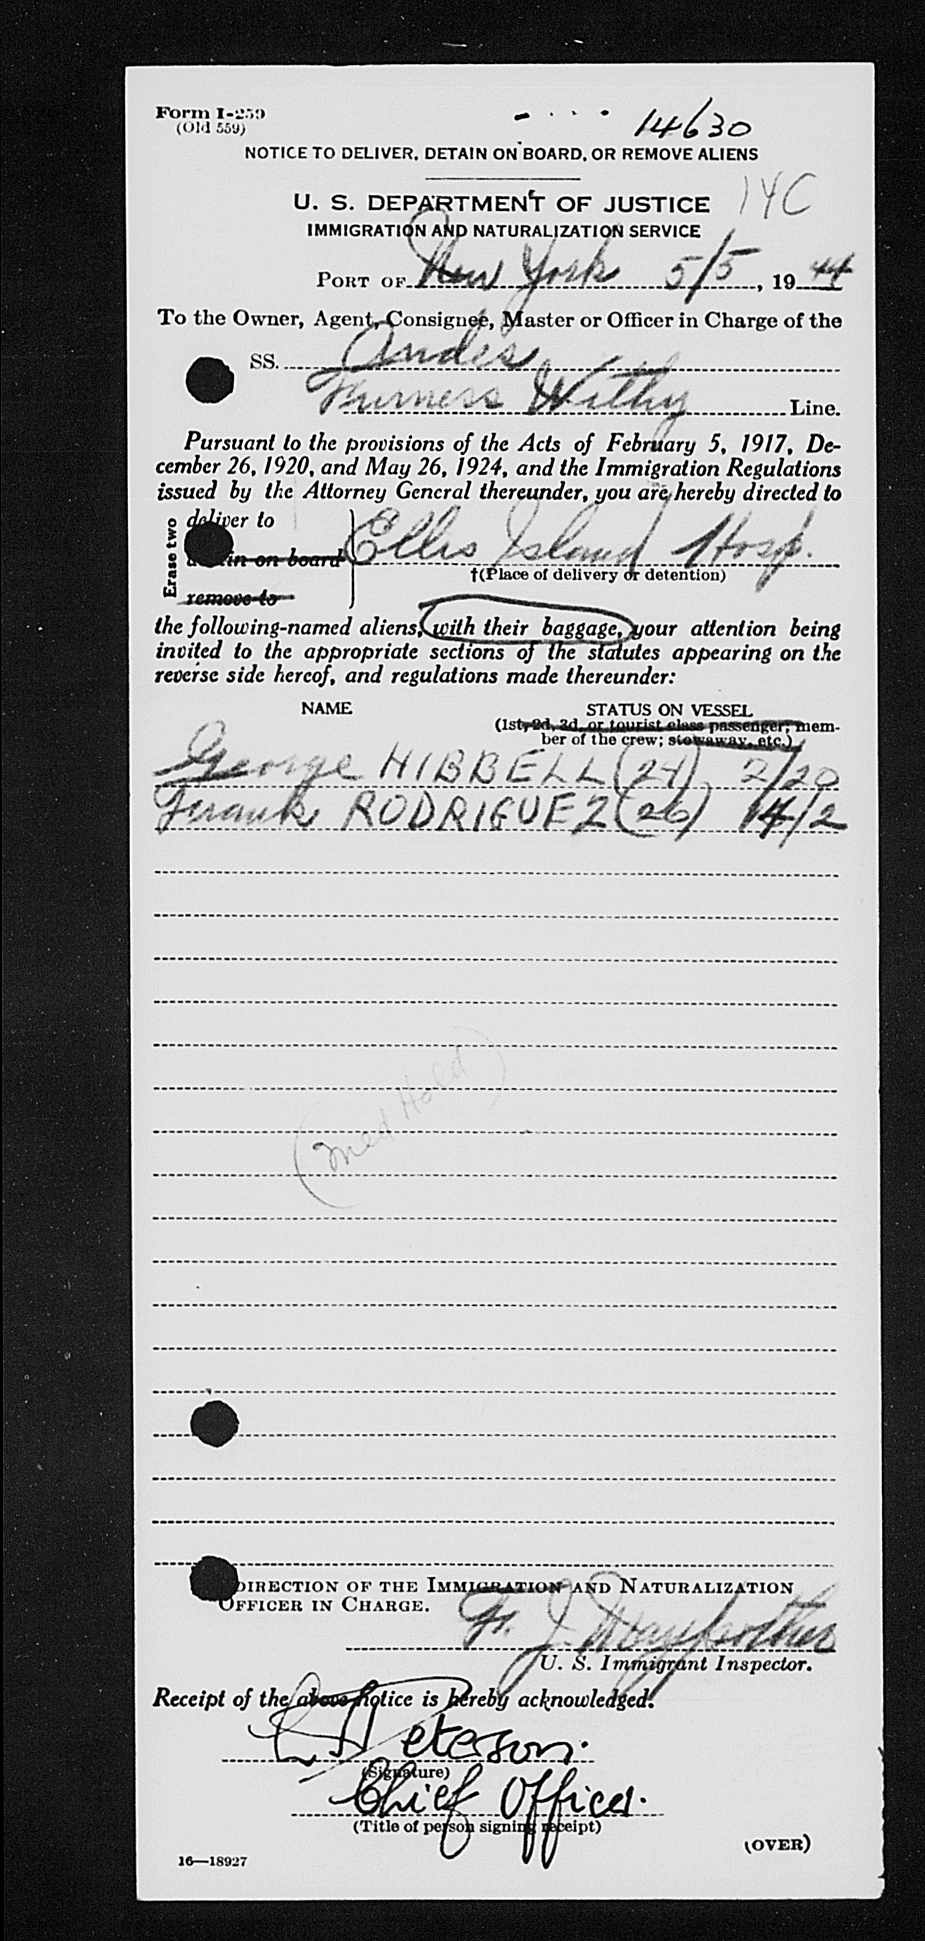 Form I-259
(Old 559)
14630
NOTICE TO DELIVER, DETAIN ON BOARD, OR REMOVE ALIENS
U. S. DEPARTMENT OF JUSTICE
14C
IMMIGRATION AND NATURALIZATION SERVICE
PORT OF New York 5/5, 1944
To the Owner, Agent, Consignee, Master or Officer in Charge of the
SS. Andes
Furness Withy Line.
Pursuant to the provisions of the Acts of February 5, 1917, De-
cember 26, 1920, and May 26, 1924, and the Immigration Regulations
issued by the Attorney General thereunder, you are hereby directed to
Erase two
deliver to
in on board
remove to
Ellis Island Hosp.
†(Place of delivery or detention)
the following-named aliens, with their baggage, your attention being
invited to the appropriate sections of the statutes appearing on the
reverse side hereof, and regulations made thereunder:
NAME STATUS ON VESSEL
(1st, 2d, 3d, or tourist class passenger; mem-
ber of the crew; stowaway, etc.)
George HIBBELL (24) 2/20
Frank RODRIGUEZ (26) 14/2
(med Hold)
DIRECTION OF THE IMMIGRATION AND NATURALIZATION
OFFICER IN CHARGE.
J.
U. S. Immigrant Inspector.
Receipt of the above notice is hereby acknowledged.
Peterson.
(Signature)
Chief Officer.
(Title of person signing receipt)
(OVER)
16—18927